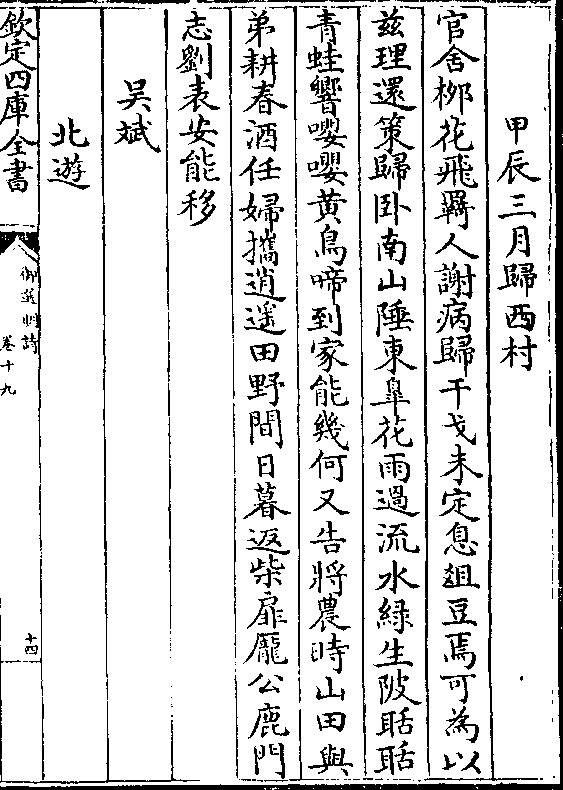 甲辰三月歸西村
官舍栁花飛羇人謝病歸干戈未定息俎豆焉可為以
兹理還策歸卧南山陲東臯花雨過流水緑生陂聒聒
青蛙響嚶嚶黄鳥啼到家能幾何又告將農時山田與
弟耕春酒任婦攜逍遥田野間日暮返柴扉龎公鹿門
志劉表安能移
吴斌
北遊
欽定四庫全書
御選明詩
卷十九
十四